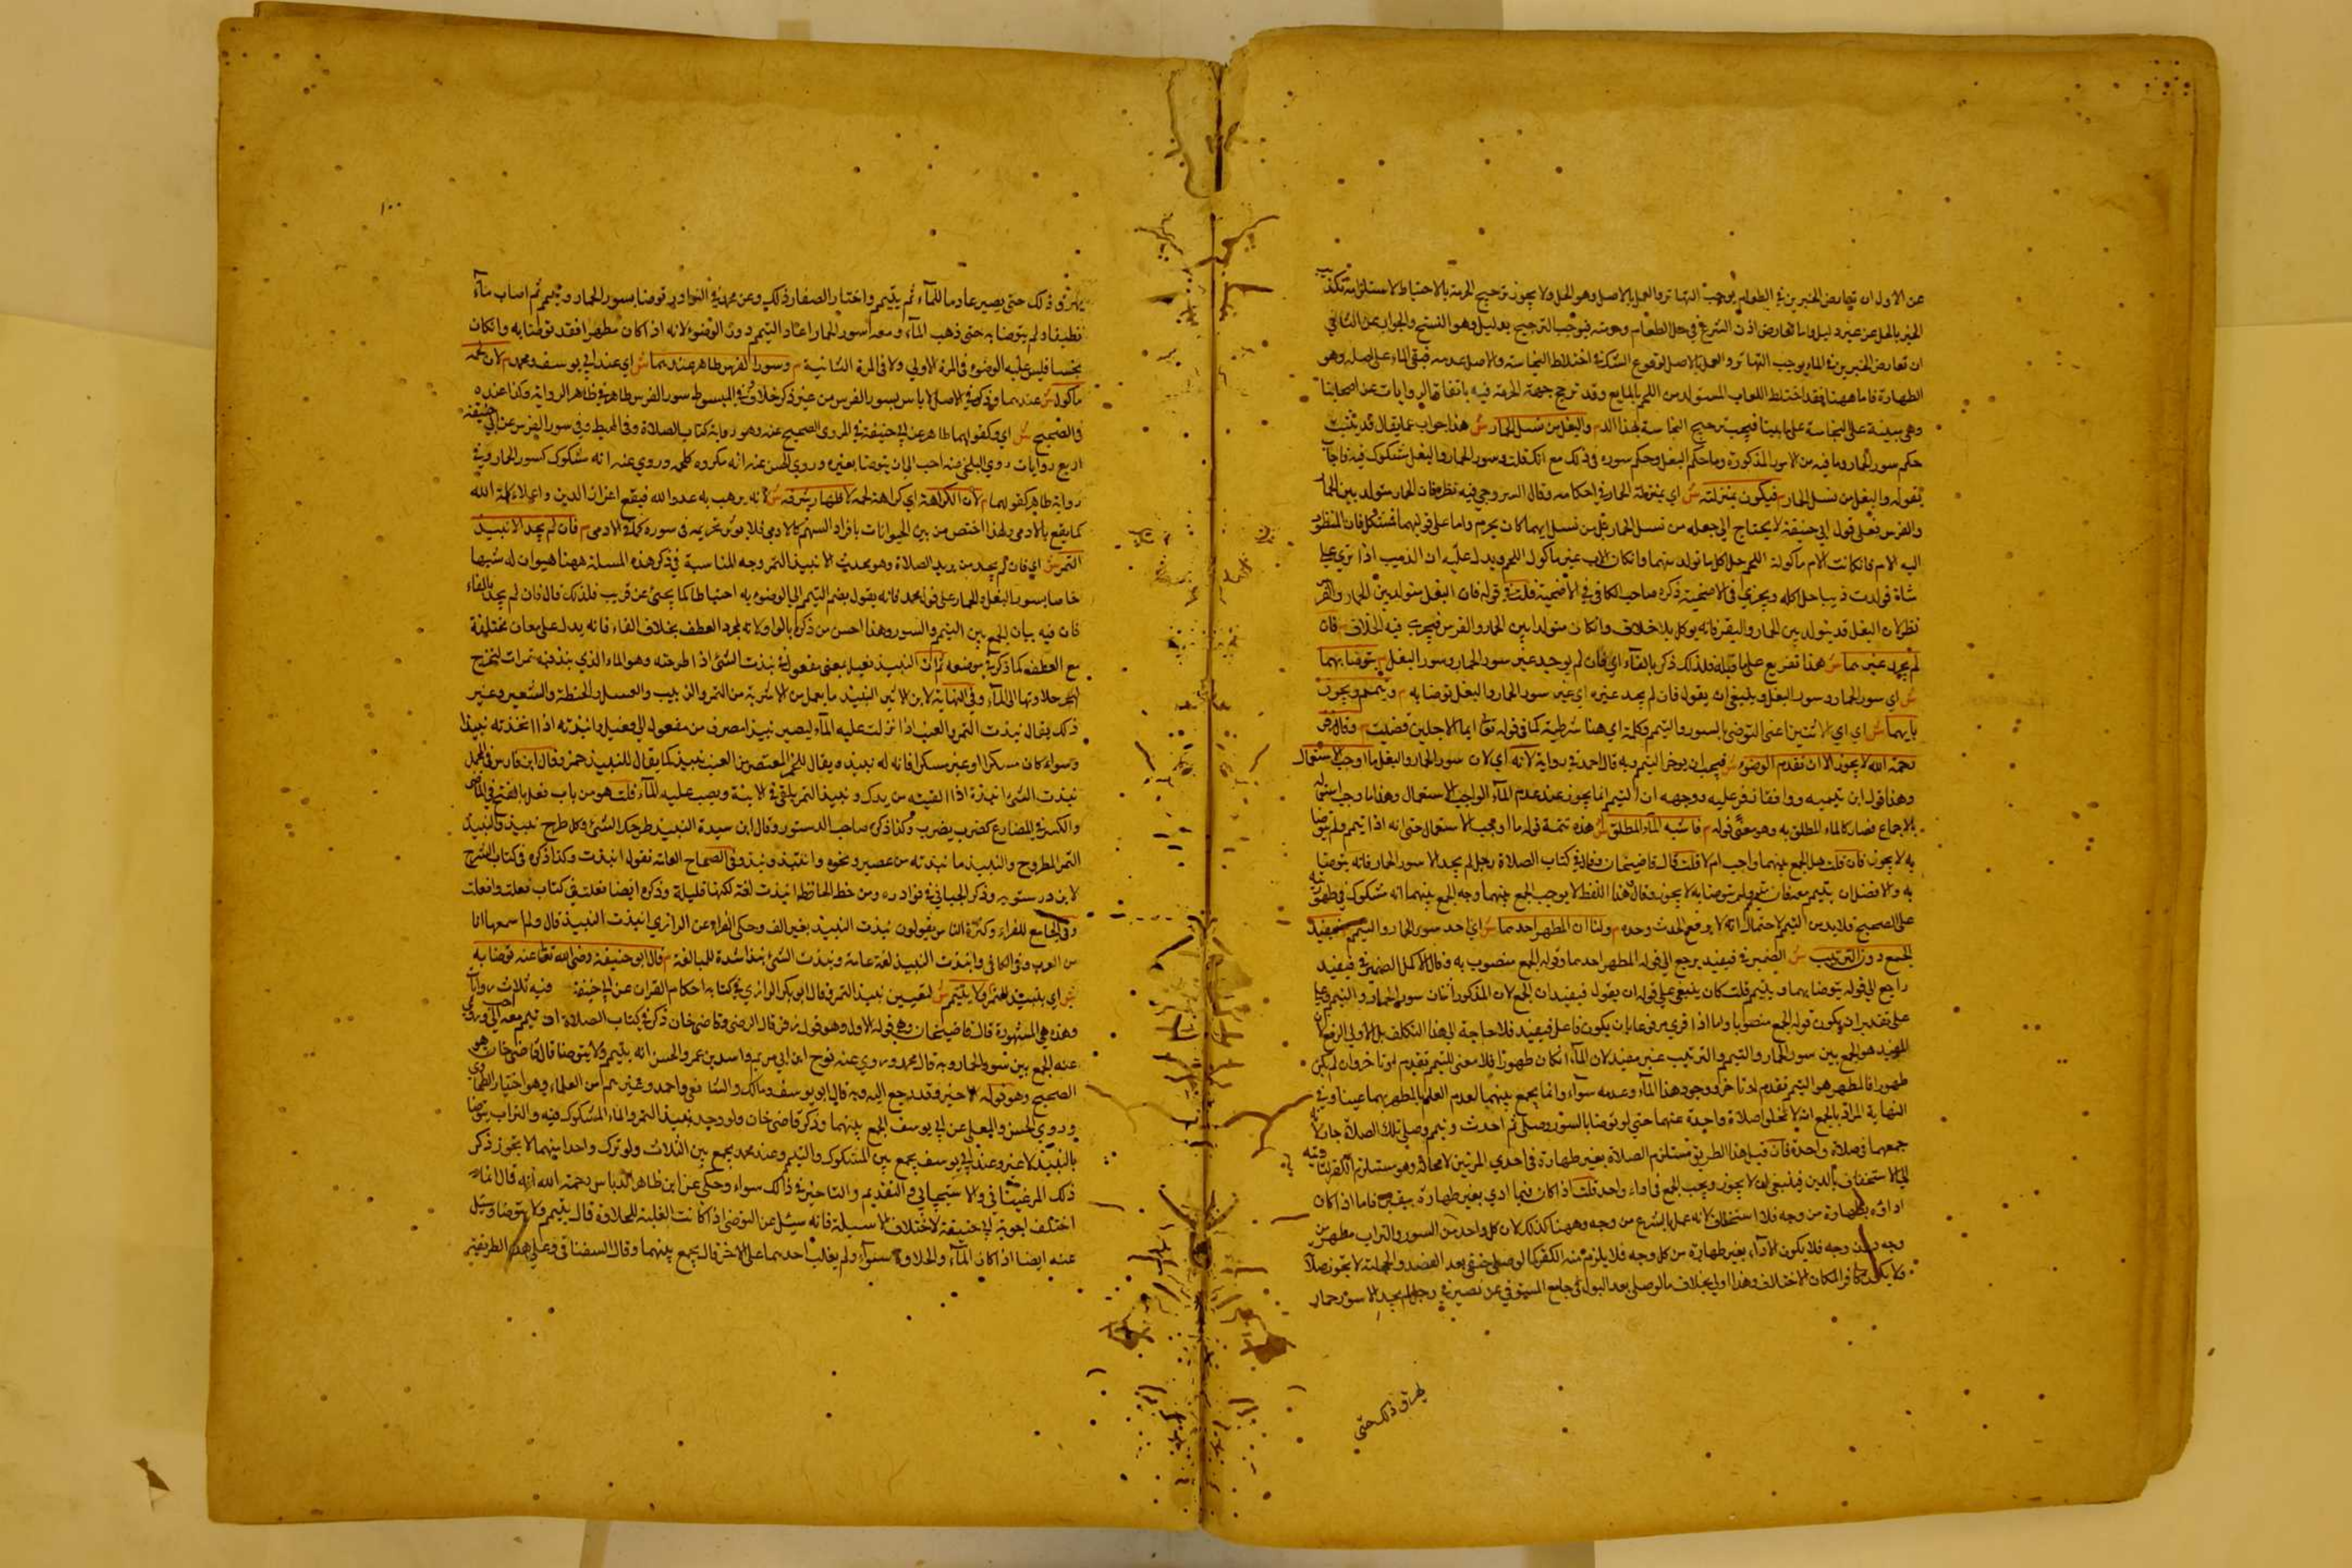 عن الاول ان تعارض الخبرين في الطعام يوجب التهاتر والعمل بالاصل وهو الحل ولا يجوز ترجيح الحرمة بالاحتياط لاستلزامه تكذيب
الخبر بالحل من غير دليل واما تعارض ادلة الشرع في حل الطعام وحرمته فيوجب الترجيح بدليل وهو النسخ والجواب عن الثاني
ان تعارض الخبرين في الماء يوجب التهاتر والعمل بالاصل لوقوع الشك في اختلاط النجاسة والاصل عدمه فبقي الماء على اصله وهو
الطهارة فاما ههنا فقد اختلط اللعاب المتولد من اللحم بالمايع وقد ترجح جهة الحرمة فيه باتفاق الروايات عن اصحابنا
وهي مبنية على النجاسة على ما بينا فيجب ترجيح النجاسة لهذا الدم والبغل من نسل الحمار ش هذا جواب عما يقال قد ثبت
حكم سور الحمار وما فيه من الامور المذكورة وما حكم البغل وحكم سوره في ذلك مع انك قلت وسور الحمار والبغل مشكوك فيه فاجاب
بقوله والبغل من نسل الحمار م فيكون بمنزلته ش اي بمنزلة الحمار في احكامه وقال السروجي فيه نظر فان الحمار متولد بين الحمار
والفرس فعلى قول ابي حنيفة لا يحتاج الى جعله من نسل الحمار بل من نسل ايهما كان يحرم واما على قولهما فمشكل فان المنظور
اليه الام فان كانت الام ماكولة اللحم حل اكل ما تولد منهما وان كان الاب غير ماكول اللحم ويدل عليه ان الذئب اذا نزى على
شاة فولدت ذيبا حل اكله ويجزي في الاضحية ذكره صاحب الكافي في الاضحية قلت في قوله فان البغل متولد بين الحمار والفرس
نظر لان البغل قد يتولد بين الحمار والبقر فانه يوكل بلا خلاف وان كان متولدا بين الحمار والفرس فيجرى فيه الخلاف م فان
لم يجد غيرهما ش هذا تفريع على ما قبله فلذلك ذكر بالفاء اي فان لم يوجد غير سور الحمار وسور البغل م يتوضا بهما
ش اي سور الحمار وسور البغل وينبغي ان يقول فان لم يجد غيره اي غير سور الحمار والبغل توضا به م ويتيمم ويجوز
بايهما ش اي اي الاثنين اعنى التوضي بالسور والتيمم وكلمة اي هنا شرطية كما في قوله تعالى ايما الاجلين قضيت م وقال زفر
رحمة الله لا يجوز الا ان تقدم الوضوء ش فيجب ان يوخر التيمم وبه قال احمد في رواية لانه اي لان سور الحمار والبغل ماء واجب الاستعمال
وهذا قول ابن تيمية ووافقنا زفر عليه ووجهه ان التيمم انما يجوز عند عدم الماء الواجب الاستعمال وهذا ما وجب استعماله
بالاجماع فصار كالماء المطلق به وهو معنى قوله م فاشبه الماء المطلق ش هذه تتمة قوله ماء واجب الاستعمال حتى انه اذا تيمم ولم يتوضا
به لا يجوز فان قلت هل الجمع بينهما واجب ام لا قلت قال قاضيخان وقال في كتاب الصلاة رجل لم يجد الا سور الحمار فانه يتوضا
به والافضل ان يتيمم معه فان تيمم ولم يتوضا به لا يجوز وقال هذا اللفظ لا يوجب الجمع بينهما وجه الجمع بينهما انه مشكوك في طهوريته
على الصحيح فلا بد من التيمم لاحتمال انه لا يرفع الحدث وحده م ولنا ان المطهر احدهما ش اي احد سور الحمار والتيمم م فيفيد
الجمع دون الترتيب ش الضمير في فيفيد يرجع الى قوله المطهر احدهما وقوله الجمع منصوب به وقال الاكمل الضمير في فيفيد
راجع الى قوله يتوضا بهما ويتيمم قلت كان ينبغي على قوله ان يقول فيفيدان الجمع لان المذكور اثنان سور الحمار والتيمم على
على تقدير ان يكون قوله الجمع منصوبا واما اذا قرى مرفوعا بان يكون فاعل فيفيد فلا حاجة الى هذا التكلف بل الاولى الرفع لان
المفيد هو الجمع بين سور الحمار والتيمم والترتيب غير مفيد لان الماء ان كان طهورا فلا معنى للتيمم تقدم او تاخر وان لم يكن
طهورا فالمطهر هو التيمم تقدم او تاخر ووجود هذا الماء وعدمه سواء وانما يجمع بينهما لعدم العلم بالمطهر بهما عينا وفي
النهاية المراد بالجمع ان لا تخلو صلاة واحدة عنهما حتى لو توضا بالسور وصلى ثم احدث وتيمم وصلى تلك الصلاة جاز لانه
جمعهما في صلاة واحدة فان قيل هذا الطريق مستلزم الصلاة بغير طهارة في احدي المرتين لا محالة وهو مستلزم الكفر لتاديه
الى الاستخفاف بالدين فينبغي ان لا يجوز ويجب الجمع في اداء واحد قلت اذا كان فيما ادي بغير طهارة بيقين فاما اذا كان
اداؤه بطهارة من وجه فلا استخفاف لانه عمل بالشرع من وجه وههنا كذلك لان كل واحد من السور والتراب مطهر من
وجه دون وجه فلا يكون الاداء بغير طهارة من كل وجه فلا يلزم منه الكفر كما لو صلى حنفي بعد الفصد والحجامة لا تجوز صلاته
ولا يكون كافرا لمكان الاختلاف وهذا اولى بخلاف ما لو صلى بعد البول في جامع المحبوبي عن نصير في رجل لم يجد الا سور حمار
يهرق ذلك حتى
١٠٠
يهرق ذلك حتى يصير عادما للماء ثم يتيمم واختار الصفار ذلك وعن محمد في النوادر توضا بسور الحمار وتيمم ثم اصاب ماء
نظيفا ولم يتوضا به حتى ذهب الماء ومعه سور الحمار اعاد التيمم دون الوضوء لانه اذا كان مطهرا فقد توضا به وان كان
نجسا فليس عليه الوضوء في المرة الاولى ولا في المرة الثانية م وسور الفرس طاهر عندهما ش اي عند ابي يوسف ومحمد م لان لحمه
ماكول ش عندهما وذكر في الاصل لا باس بسور الفرس من غير ذكر خلاف وفي المبسوط سور الفرس طاهر في ظاهر الرواية وكذا عنده
في الصحيح ش اي وكقولهما طاهر عن ابي حنيفة في المروي الصحيح عنه وهو رواية كتاب الصلاة وفي المحيط وفي سور الفرس عن ابي حنيفة
اربع روايات روي البلخي عنه احب الي ان يتوضا بغيره وروي الحسن عنه انه مكروه كلحمه وروي عنه انه مشكوك كسور الحمار وفي
رواية طاهر كقولهما م لان الكراهة اي كراهة لحمه لاظهار شرفه ش لانه يرهب به عدو الله فيقع اعزاز الدين واعلاء كلمة الله
كما يقع بالادمي ولهذا اختص من بين الحيوانات بافراد السهم كالادمي فلا يوثر تحريمه في سوره كما في الادمي م فان لم يجد الا نبيذ
التمر ش اي فان لم يجد من يريد الصلاة وهو محدث الا نبيذ التمر وجه المناسبة في ذكر هذه المسئلة ههنا هو ان له شبها
خاصا بسور البغل والحمار على قول محمد فانه يقول بضم التيمم الى الوضوء به احتياطا كما يجئ عن قريب فلذلك قال فان لم يجد بالفاء
فان فيه بيان الجمع بين التيمم والسور وهذا احسن من ذكره بالواو لانه لمجرد العطف بخلاف الفاء فانه يدل على معان مختلفة
مع العطف كما ذكر في موضعه ثم ان النبيذ فعيل بمعنى مفعول من نبذت الشئ اذا طرحته وهو الماء الذي ينبذ فيه تمرات لتخرج
حلاوتها الى الماء وفي النهاية لابن الاثير النبيذ ما يعمل من الاشربة من التمر والزبيب والعسل والحنطة والشعير وغير
ذلك يقال نبذت التمر والعنب اذا تركت عليه الماء ليصير نبيذا مصرف من مفعول الى فعيل وانبذته اذا اتخذته نبيذا
وسواء كان مسكرا او غير مسكر فانه له نبيذ ويقال للخمر المعتصر من العنب نبيذ كما يقال للنبيذ خمر وقال ابن فارس في المجمل
نبذت الشئ انبذه اذا القيته من يدك ونبيذ التمر يلقى في الانية ويصب عليه الماء قلت هو من باب فعل بالفتح في الماضي
والكسر في المضارع كضرب يضرب وكذا ذكره صاحب الدستور وقال ابن سيدة النبيذ طرحك الشئ وكل طرح نبيذ والنبيذ
التمر المطروح والنبيذ ما نبذته من عصير ونحوه وانتبذ ونبذ وفي الصحاح العامة تقول انبذت وكذا ذكره في كتاب الشرح
لابن درستويه وذكر اللحياني في نوادره ومن خط الحافظ انبذت لغة لكنها قليلة وذكره ايضا ثعلب في كتاب فعلت وافعلت
وفي الجامع للفراء وكثرة الناس يقولون نبذت النبيذ بغير الف وحكى الفراء عن الرازي انبذت النبيذ قال ولم اسمعها انا
من العرب وفي الكافي وانبذت النبيذ لغة عامة ونبذت الشئ شدد للمبالغة م قال ابو حنيفة رضي الله تعالى عنه توضا به
ش اي بنبيذ التمر م ولا يتيمم ش لتعيين نبيذ التمر وقال ابو بكر الرازي في كتابه احكام القران عن ابي حنيفة فيه ثلاث روايات
وهذه هي المشهورة قال قاضيخان وهي قوله الاول وهو قول زفر قال الرضى وقاضي خان ذكر في كتاب الصلاة ان تيمم معه احب الي وروي
عنه الجمع بين سور الحمار وبه قال محمد وروي عنه نوح ابن ابي مريم واسد بن عمر والحسن انه يتيمم ولا يتوضا قال قاضي خان هو
الصحيح وهو قوله الاخير وقد رجع اليه وبه قال ابو يوسف ومالك والشافعي واحمد وغيرهم من العلماء وهو اختيار الطحاوي
وروي الحسن والمعلى عن ابي يوسف الجمع بينهما وذكر قاضي خان ولو وجد نبيذ التمر والماء المشكوك فيه والتراب يتوضا
بالنبيذ لا غير وعند ابي يوسف يجمع بين المشكوك والتيمم وعند محمد يجمع بين الثلاث ولو ترك واحدا منهما لا يجوز ذكر
ذلك المرغيناني والاسبيجابي والتقديم والتاخير في ذلك سواء وحكي عن ابن طاهر الدباس رحمة الله انه قال انما
اختلف اجوبة ابي حنيفة لاختلاف الاسئلة فانه سئل عن التوضي اذا كانت الغلبة للحلاوة قال يتيمم ولا يتوضا وسئل
عنه ايضا اذا كان الماء والحلاوة سواء ولم يغلب احدهما على الاخر قال يجمع بينهما وقال السغناقي وعلى هذه الطريقة